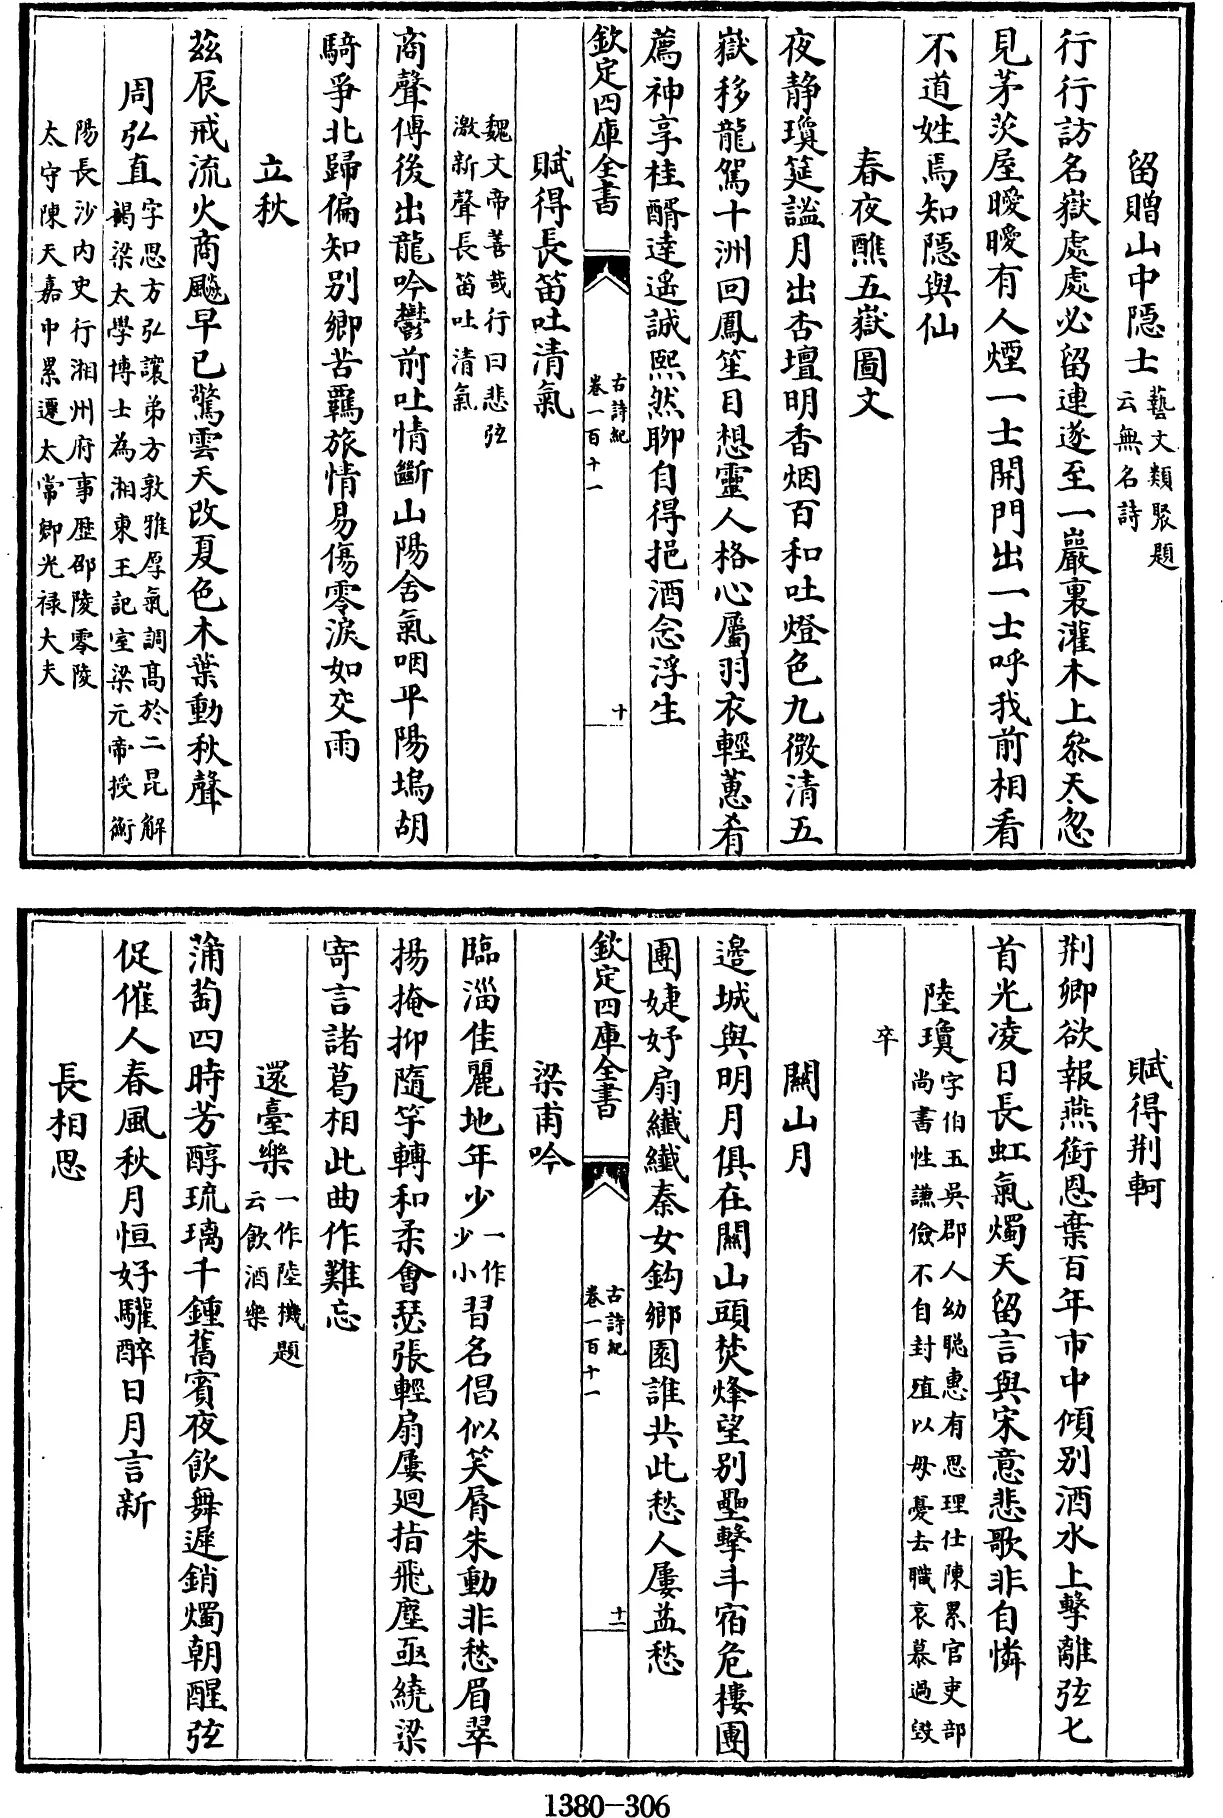 留贈山中隠士藝文類聚題云無名詩
行行訪名嶽處處必留連遂至一巖裏灌木上叅天忽
見茅茨屋曖曖有人煙一士開門出一士呼我前相看
不道姓焉知隠與仙
春夜醮五嶽圖文
夜静瓊筵謐月出杏壇明香烟百和吐燈色九微清五
嶽移龍駕十洲回鳳笙目想靈人格心屬羽衣輕蕙肴
薦神享桂醑達遥誠熙然聊自得挹酒念浮生
欽定四庫全書
古詩紀
卷一百十一
十
賦得長笛吐清氣
魏文帝善哉行曰悲弦
激新聲長笛吐清氣
商聲傳後出龍吟鬱前吐情斷山陽舍氣咽平陽塢胡
騎爭北歸偏知别鄉苦羈旅情易傷零淚如交雨
立秋
兹辰戒流火商飈早已驚雲天改夏色木葉動秋聲
周弘直字思方弘讓弟方敦雅厚氣調髙於二昆解褐梁太學博士為湘東王記室梁元帝授衡
陽長沙内史行湘州府事歴邵陵零陵
太守陳天嘉中累遷太常卿光禄大夫
賦得荆軻
荆卿欲報燕銜恩棄百年市中傾别酒水上擊離弦七
首光凌日長虹氣燭天留言與宋意悲歌非自憐
陸瓊字伯玉吳郡人幼聪惠有思理仕陳累官吏部尚書性謙儉不自封殖以母憂去職哀慕過毁
卒
關山月
邊城與明月俱在關山頭焚烽望别壘擊斗宿危樓團
團婕妤扇纎纎秦女鈎鄉園誰共此愁人屢益愁
欽定四庫全書
古詩紀
卷一百十一
十一
梁甫吟
臨淄佳麗地年少一作少小習名倡似笑脣朱動非愁眉翠
揚掩抑隨竽轉和柔會瑟張輕扇屢廻指飛塵亟繞梁
寄言諸葛相此曲作難忘
還臺樂一作陸機題云飲酒樂
蒲萄四時芳醇琉璃千鍾舊賓夜飲舞遲銷燭朝醒弦
促催人春風秋月恒好驩醉日月言新
長相思
1380-306